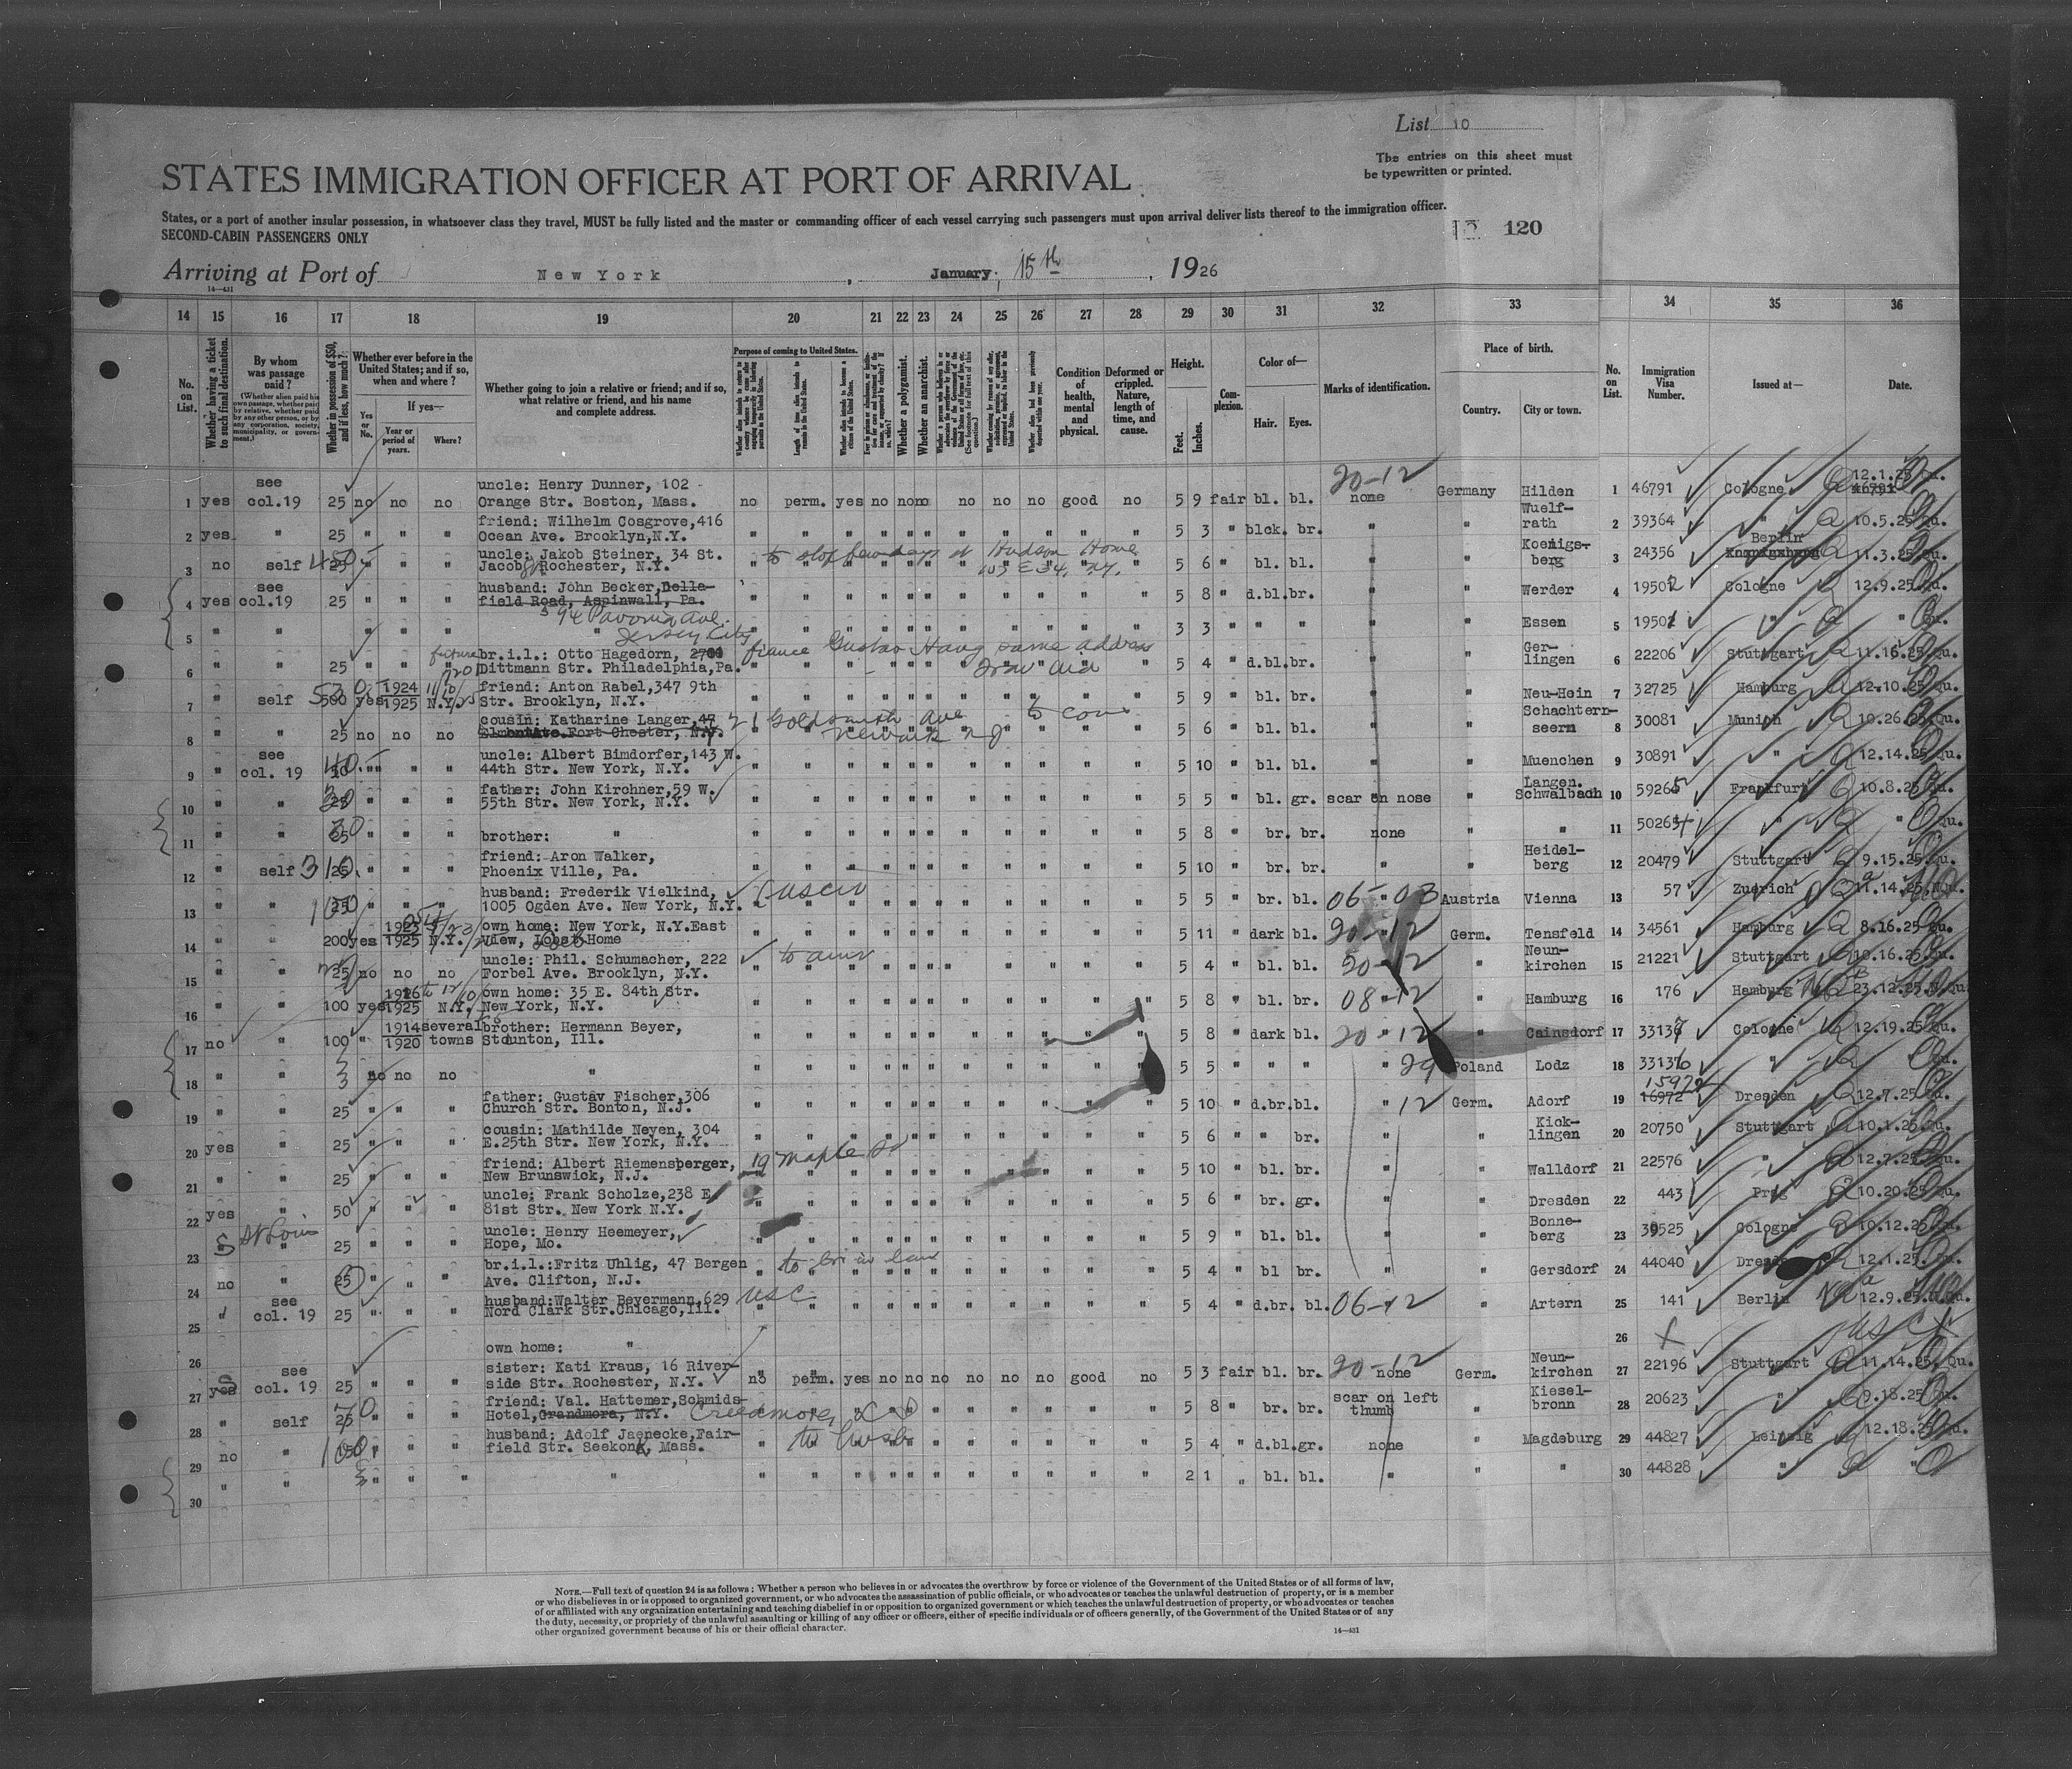 List 10
The entries on this sheet must
be typewritten or printed.
STATES IMMIGRATION OFFICER AT PORT OF ARRIVAL
States, or a port of another insular possession, in whatsoever class they travel, MUST be fully listed and the master or commanding officer of each vessel carrying such passengers must upon arrival deliver lists thereof to the immigration officer.
SECOND-CABIN PASSENGERS ONLY
120
Arriving at Port of New York, January, 15th, 1926
14—431
14 15 16 17 18 19 20 21 22 23 24 25 26 27 28 29 30 31 32 33 34 35 36
No. on List.
Whether having a ticket to such final destination.
By whom was passage paid?
(Whether alien paid his own passage, whether paid by relative, whether paid by any other person, or by any corporation, society, municipality, or government.)
Whether in possession of $50, and if less, how much?
Whether ever before in the United States; and if so, when and where?
Yes or No.
If yes—
Year or period of years.
Where?
Whether going to join a relative or friend; and if so, what relative or friend, and his name and complete address.
Purpose of coming to United States.
Length of time alien intends to remain in the United States.
Whether alien intends to become a citizen of the United States.
Whether a polygamist.
Whether an anarchist.
Condition of health, mental and physical.
Deformed or crippled. Nature, length of time, and cause.
Height.
Feet. Inches.
Complexion.
Color of—
Hair. Eyes.
Marks of identification.
Place of birth.
Country. City or town.
No. on List.
Immigration Visa Number.
Issued at—
Date.
uncle: Henry Dunner, 102 20-12 12.1.25 Qu.
1 yes see col.19 25 no no no Orange Str. Boston, Mass. no perm. yes no no no no no no good no 5 9 fair bl. bl. none Germany Hilden 1 46791 Cologne
friend: Wilhelm Cosgrove,416 Wuelf-
2 yes " 25 " " " Ocean Ave. Brooklyn,N.Y. 5 3 " blck. br. " " rath 2 39364 " 10.5.25 Qu.
uncle: Jakob Steiner, 34 St. to stop few days at Hudson Home Koenigs- Berlin
3 no self 25 " " " Jacob Rochester, N.Y. 103 E 34. N.Y. 5 6 " bl. bl. " " berg 3 24356 11.3.25 Qu.
see husband: John Becker, Della-
4 yes col.19 25 " " " field Road, Aspinwall, Pa. 5 8 " d.bl. br. " " Werder 4 19502 Cologne 12.9.25 Qu.
94 Pavonia Ave.
5 " " " " " " Jersey City 3 3 " " " " " Essen 5 19501 " " Qu.
future br.i.l.: Otto Hagedorn, fiance Gustav Haug same address Ger-
6 " " 25 " " " Dittmann Str. Philadelphia,Pa. 5 4 " d.bl. br. " " lingen 6 22206 Stuttgart 11.16.25 Qu.
1924 friend: Anton Rabel,347 9th
7 " self 500 yes 1925 N.Y. Str. Brooklyn, N.Y. 5 9 " bl. br. " " Neu-Hein 7 32725 Hamburg 12.10.25 Qu.
cousin: Katharine Langer,47 21 Goldsmith Ave to cous Schachtern-
8 " " 25 no no no Elmont Ave. Fort Chester, N.Y. Newark NJ 5 6 " bl. bl. " " seern 8 30081 Munich 10.26.25 Qu.
see uncle: Albert Bimdorfer,143 W.
9 " col. 19 40 " " " 44th Str. New York, N.Y. 5 10 " bl. bl. " " Muenchen 9 30891 " 12.14.25 Qu.
father: John Kirchner,59 W. Langen.
10 " " 30 " " " 55th Str. New York, N.Y. 5 5 " bl. gr. scar on nose " Schwalbach 10 59265 Frankfurt 10.8.25 Qu.
11 " " 30 " " " brother: " 5 8 " br. br. none " " 11 50264 " " Qu.
friend: Aron Walker, Heidel-
12 " self 25 " " " Phoenix Ville, Pa. 5 10 " br. br. " " berg 12 20479 Stuttgart 9.15.25 Qu.
husband: Frederik Vielkind,
13 " " " " " 1005 Ogden Ave. New York, N.Y. 5 5 " br. bl. 06-03 Austria Vienna 13 57 Zuerich 11.14.25
1923 own home: New York, N.Y.East
14 " " 200 yes 1925 N.Y. View, Home 5 11 " dark bl. 20-12 Germ. Tensfeld 14 34561 Hamburg 8.16.25 Qu.
uncle: Phil. Schumacher, 222 Neun-
15 " " 25 no no no Forbel Ave. Brooklyn, N.Y. 5 4 " bl. bl. 20-12 " kirchen 15 21221 Stuttgart 10.16.25 Qu.
own home: 35 E. 84th Str.
16 " " 100 yes 1925 N.Y. New York, N.Y. 5 8 " bl. br. 08-12 " Hamburg 16 176 Hamburg 23.12.25
1914 several brother: Hermann Beyer,
17 no " 100 " 1920 towns Staunton, Ill. 5 8 " dark bl. 20-12 " Cainsdorf 17 33137 Cologne 12.19.25 Qu.
18 " " no no no " 5 5 " " " " 29 Poland Lodz 18 33136 " Qu.
father: Gustav Fischer,306 15972
19 " " 25 " " " Church Str. Bonton, N.J. 5 10 " d.br. bl. " 12 Germ. Adorf 19 16972 Dresden 12.7.25 Qu.
cousin: Mathilde Neyen, 304 Kick-
20 yes " 25 " " " E.25th Str. New York, N.Y. 5 6 " " br. " " lingen 20 20750 Stuttgart 10.1.25 Qu.
friend: Albert Riemensperger, 19 Maple St
21 " " 25 " " " New Brunswick, N.J. 5 10 " bl. br. " " Walldorf 21 22576 " 12.7.25 Qu.
uncle: Frank Scholze,238 E
22 yes " 50 " " " 81st Str. New York N.Y. 5 6 " br. gr. " " Dresden 22 443 Prag 10.20.25 Qu.
St Louis uncle: Henry Heemeyer, Bonne-
23 S " 25 " " " Hope, Mo. 5 9 " bl. bl. " " berg 23 39525 Cologne 10.12.25 Qu.
br.i.l.:Fritz Uhlig, 47 Bergen to bro in law
24 no " 25 " " " Ave. Clifton, N.J. 5 4 " bl br. " " Gersdorf 24 44040 12.1.25 Qu.
see husband:Walter Beyermann,629 USC
25 " col. 19 25 " " " Nord Clark Str.Chicago,Ill. 5 4 " d.br. bl. 06-12 " Artern 25 141 Berlin 12.9.25
26 own home: " 26 X USC
see sister: Kati Kraus, 16 River- 20-12 Neun-
27 yes col. 19 25 " " " side Str. Rochester, N.Y. no perm. yes no no no no no no good no 5 3 fair bl. br. none Germ. kirchen 27 22196 Stuttgart 11.14.25 Qu.
friend: Val. Hattemer,Schmids- scar on left Kiesel-
28 " self 70 " " " Hotel, Grandmora, N.Y. Creedmore, L I 5 8 " br. br. thumb " bronn 28 20623 " 9.18.25 Qu.
husband: Adolf Jaenecke,Fair- to husb
29 no " 100 " " " field Str. Seekonk, Mass. 5 4 " d.bl. gr. none " Magdeburg 29 44827 Leipzig 12.18.25 Qu.
30 " " " " " " 2 1 " bl. bl. " " " 30 44828 " "
NOTE.—Full text of question 24 is as follows: Whether a person who believes in or advocates the overthrow by force or violence of the Government of the United States or of all forms of law,
or who disbelieves in or is opposed to organized government, or who advocates the assassination of public officials, or who advocates or teaches the unlawful destruction of property, or is a member
of or affiliated with any organization entertaining and teaching disbelief in or opposition to organized government or which teaches the unlawful destruction of property, or who advocates or teaches
the duty, necessity, or propriety of the unlawful assaulting or killing of any officer or officers, either of specific individuals or of officers generally, of the Government of the United States or of any
other organized government because of his or their official character.
14—431